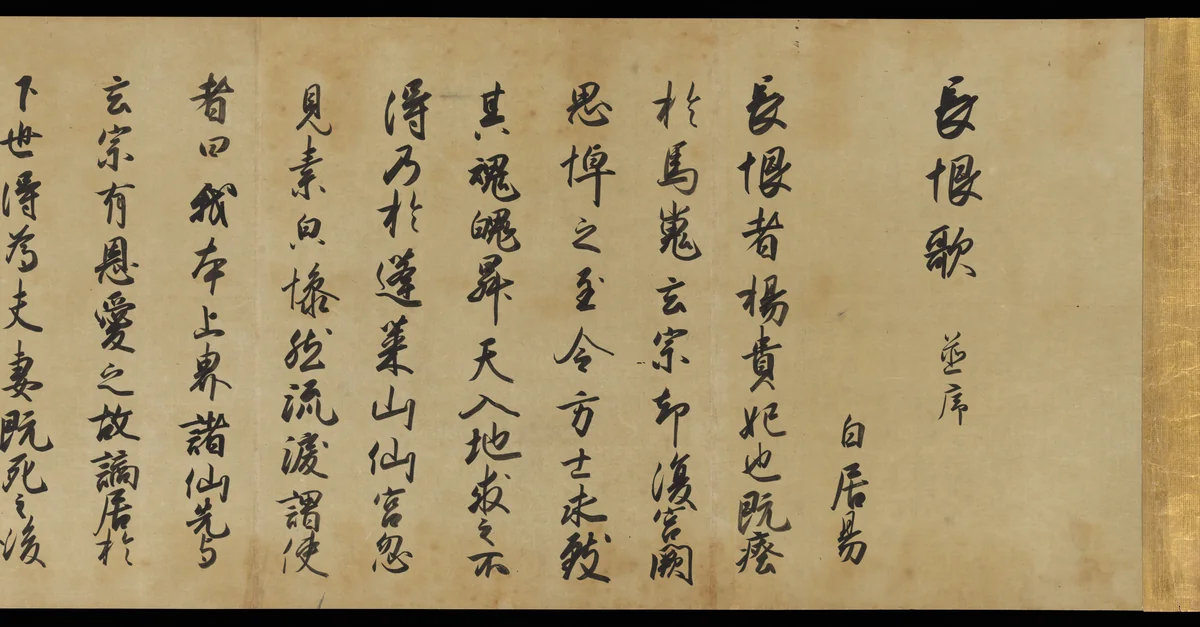 長恨歌 並序
白居易
長恨者楊貴妃也既瘞
於馬嵬玄宗却復宮闕
思悼之至令方士求致
其魂魄昇天入地求之不
得乃於蓬萊山仙宮忽
見素白慘然流淚謂使
者曰我本上界諸仙先与
玄宗有恩愛之故謫居於
下世得為夫妻既死之後